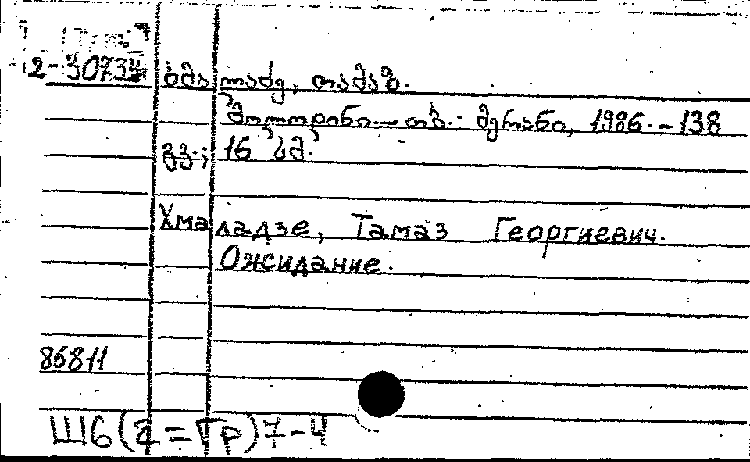 2-30734
ხმალაძე, თამაზ.
მოლოდინი. — თბ.: მერანი, 1986. - 138
გვ.; 16 სმ.
Хмаладзе, Тамаз Георгиевич.
Ожидание.
86811
Ш6(2=Гр)7-4